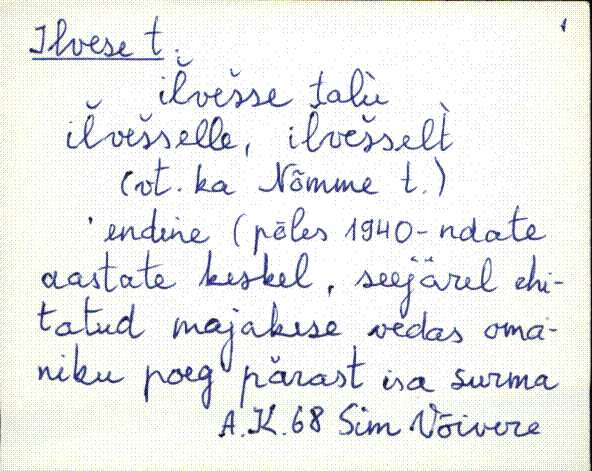 Ilvese t. 1
ĭl̆vešse talù
ĭl̆vešselle, ĭl̆vešselt̀
(vt. ka Nõmme t.)
'endine (pēles 1940-ndate
aastate keskel, seejärel ehi-
tatud majakese vedas oma-
niku poeg pärast isa surma
A.K.68 Sim Võivere